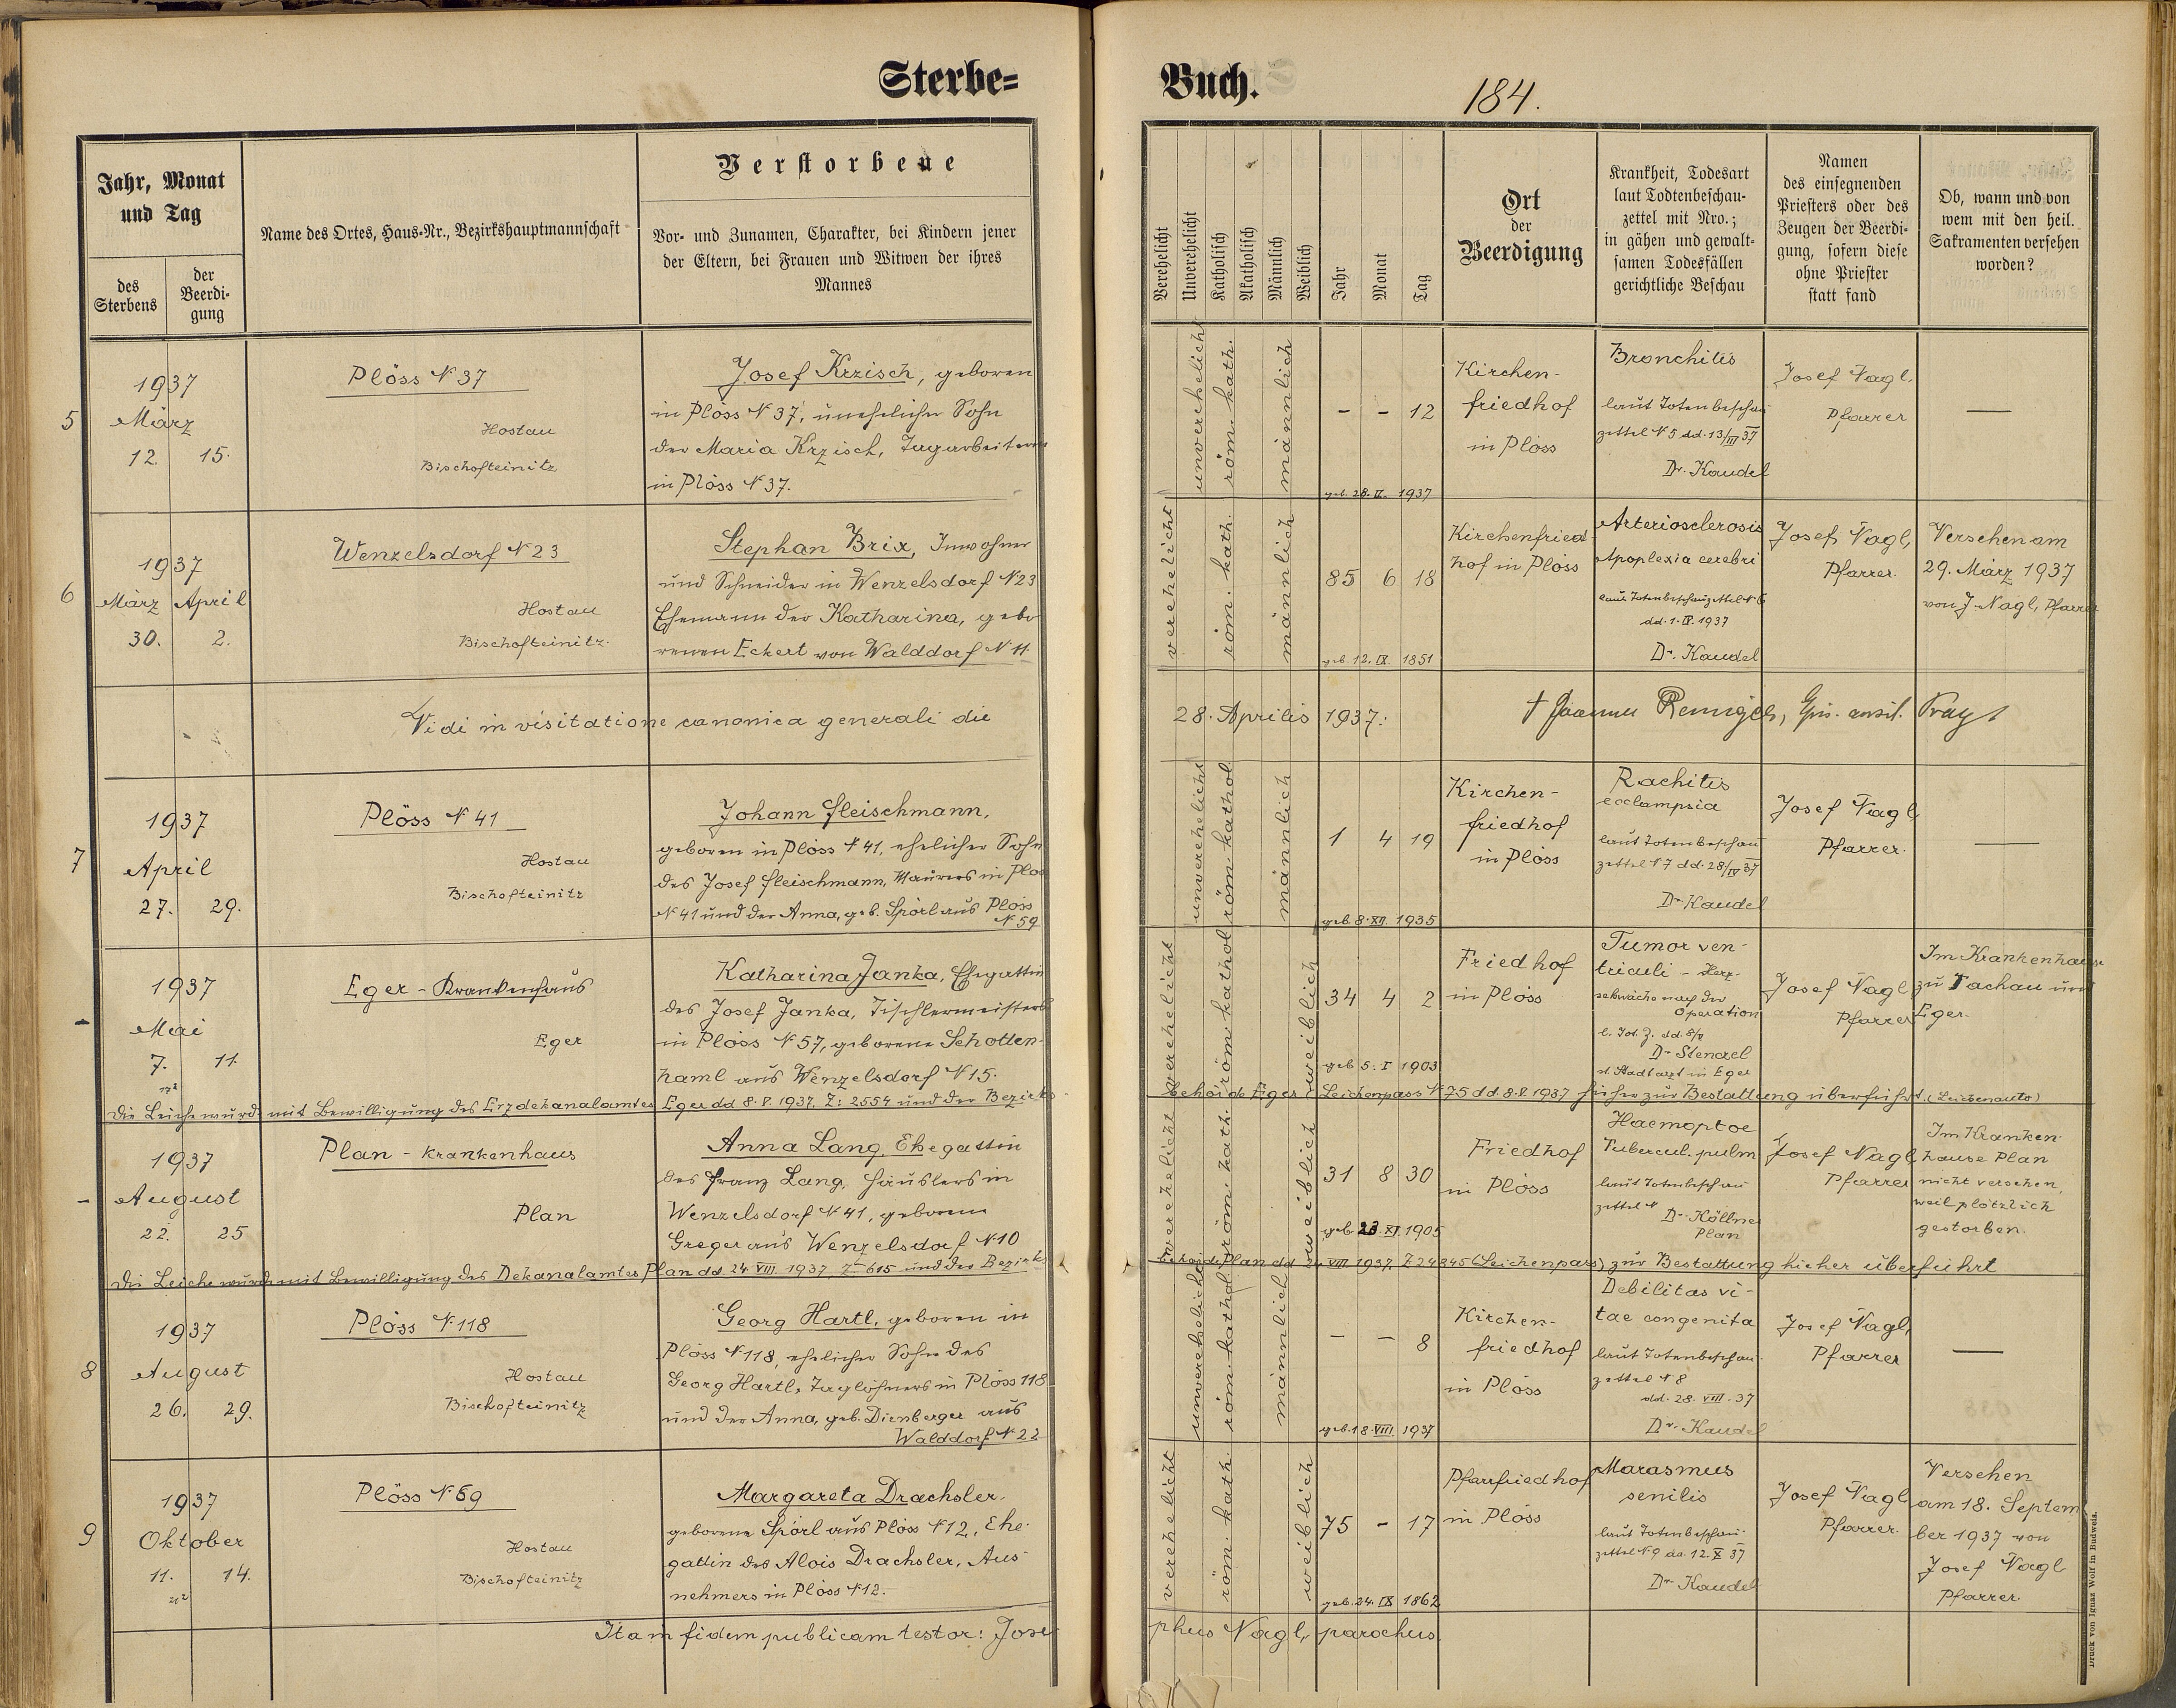 Sterbe=
Buch.
184.
Jahr, Monat
und Tag
des
Sterbens
der
Beerdi-
gung
Name des Ortes, Haus-Nr., Bezirkshauptmannschaft
Verstorbene
Vor- und Zunamen, Charakter, bei Kindern jener
der Eltern, bei Frauen und Witwen der ihres
Mannes
Verehelicht
Unverehelicht
Katholisch
Akatholisch
Männlich
Weiblich
Jahr
Monat
Tag
Ort
der
Beerdigung
Krankheit, Todesart
laut Todtenbeschau-
zettel mit Nro.;
in gähen und gewalt-
samen Todesfällen
gerichtliche Beschau
Namen
des einsegnenden
Priesters oder des
Zeugen der Beerdi-
gung, sofern diese
ohne Priester
statt fand
Ob, wann und von
wem mit den heil.
Sakramenten versehen
worden?
5
1937
März
12. 15.
Plöss N 37
Hostau
Bischofteinitz
Josef Krzisch, geboren
in Plöss N 37, unehelicher Sohn
der Maria Krzisch, Tagarbeiterin
in Plöss N 37.
unverehelicht
röm. kath.
männlich
- - 12
geb. 28. II. 1937
Kirchen-
friedhof
in Plöss
Bronchitis
laut Totenbeschau
zettel N 5 dd. 13/III 37
Dr. Kaudel
Josef Nagl,
Pfarrer
—
6
1937
März April
30. 2.
Wenzelsdorf N 23
Hostau
Bischofteinitz.
Stephan Brix, Inwohner
und Schneider in Wenzelsdorf N 23
Ehemann der Katharina, gebo
renen Eckert von Walddorf N 11.
verehelicht
röm. kath.
männlich
85 6 18
geb 12. IX. 1851
Kirchenfried
hof in Plöss
Arteriosclerosis
Apoplexia cerebri
laut Totenbeschauzettel N 6
dd. 1. IV. 1937
Dr. Kaudel
Josef Nagl,
Pfarrer.
Versehen am
29. März 1937
von J. Nagl, Pfarrer
Vidi in visitatione canonica generali die
28. Aprilis 1937:
† Joannes Remiger, Prag
7
1937
April
27. 29.
Plöss N 41
Hostau
Bischofteinitz
Johann Fleischmann,
geboren in Plöss N 41, ehelicher Sohn
des Josef Fleischmann, Maurers in Plöss
N 41 und der Anna, geb. Spörl aus Plöss
N 59
unverehelicht
röm. kathol
männlich
1 4 19
geb. 8. XII. 1935
Kirchen-
friedhof
in Plöss
Rachitis
ecclampsia
laut Totenbeschau
zettel N 7 dd. 28/IV 37
Dr. Kaudel
Josef Nagl
Pfarrer.
—
-
1937
Mai
7. 11.
Eger - Krankenhaus
Eger
Katharina Janka, Ehegattin
des Josef Janka, Tischlermeisters
in Plöss N 57, geborene Schotten-
haml aus Wenzelsdorf N 15.
verehelicht
röm kathol
weiblich
34 4 2
geb 5. I 1903
Friedhof
in Plöss
Tumor ven-
triculi - Herz-
schwäche nach der
Operation
l. Tot. Z. dd. 8/V
Dr. Stenzel
st Stadtarzt in Eger
Josef Nagl
Pfarrer
Im Krankenhause
zu Tachau und
Eger.
Die Leiche wurde mit Bewilligung des Erzdekanalamtes Eger dd 8. V. 1937. Z: 2554 und der Bezirks-
behörde Eger Leichenpass N 75 dd. 8. V. 1937 hieher zur Bestattung überführt. (Leichenauto)
-
1937
August
22. 25
Plan - Krankenhaus
Plan
Anna Lang, Ehegattin
des Franz Lang, Häuslers in
Wenzelsdorf N 41, geborene
Greger aus Wenzelsdorf N 10
verehelicht
röm. kath.
weiblich
31 8 30
geb. 23. XI. 1905
Friedhof
in Plöss
Haemoptoe
Tubercul. pulm
laut Totenbeschau
zettel N
Dr. Köllner
Plan
Josef Nagl
Pfarrer
Im Kranken-
hause Plan
nicht versehen,
weil plötzlich
gestorben.
Die Leiche wurde mit Bewilligung des Dekanalamtes Plan dd. 24 VIII. 1937 Z 615 und der Bezirks
behörde Plan dd 24 VIII 1937. Z 24845 (Leichenpass) zur Bestattung hieher überführt
8
1937
August
26. 29.
Plöss N 118
Hostau
Bischofteinitz
Georg Hartl, geboren in
Plöss N 118, ehelicher Sohn des
Georg Hartl, Taglöhners in Plöss 118
und der Anna, geb. Dirnberger aus
Walddorf N 22
unverehelicht
röm. kathol
männlich
- - 8
geb. 18. VIII. 1937
Kirchen-
friedhof
in Plöss
Debilitas vi-
tae congenita
laut Totenbeschau-
zettel N 8
dd. 28. VIII. 37
Dr. Kaudel
Josef Nagl,
Pfarrer
—
9
1937
Oktober
11. 14.
Plöss N 59
Hostau
Bischofteinitz
Margareta Drachsler,
geborene Spörl aus Plöss N 12, Ehe-
gattin des Alois Drachsler, Aus-
nehmers in Plöss N 12.
verehelicht
röm. kath.
weiblich
75 - 17
geb. 24. IX 1862
Pfarrfriedhof
in Plöss
Marasmus
senilis
laut Totenbeschau-
zettel N 9 dd. 12. X 37
Dr. Kaudel
Josef Nagl
Pfarrer.
Versehen
am 18. Septem
ber 1937 von
Josef Nagl
Pfarrer.
Ita in fidem publicam testor: Jose
phus Nagl, parochus.
Druck von Ignaz Wolf in Budweis.